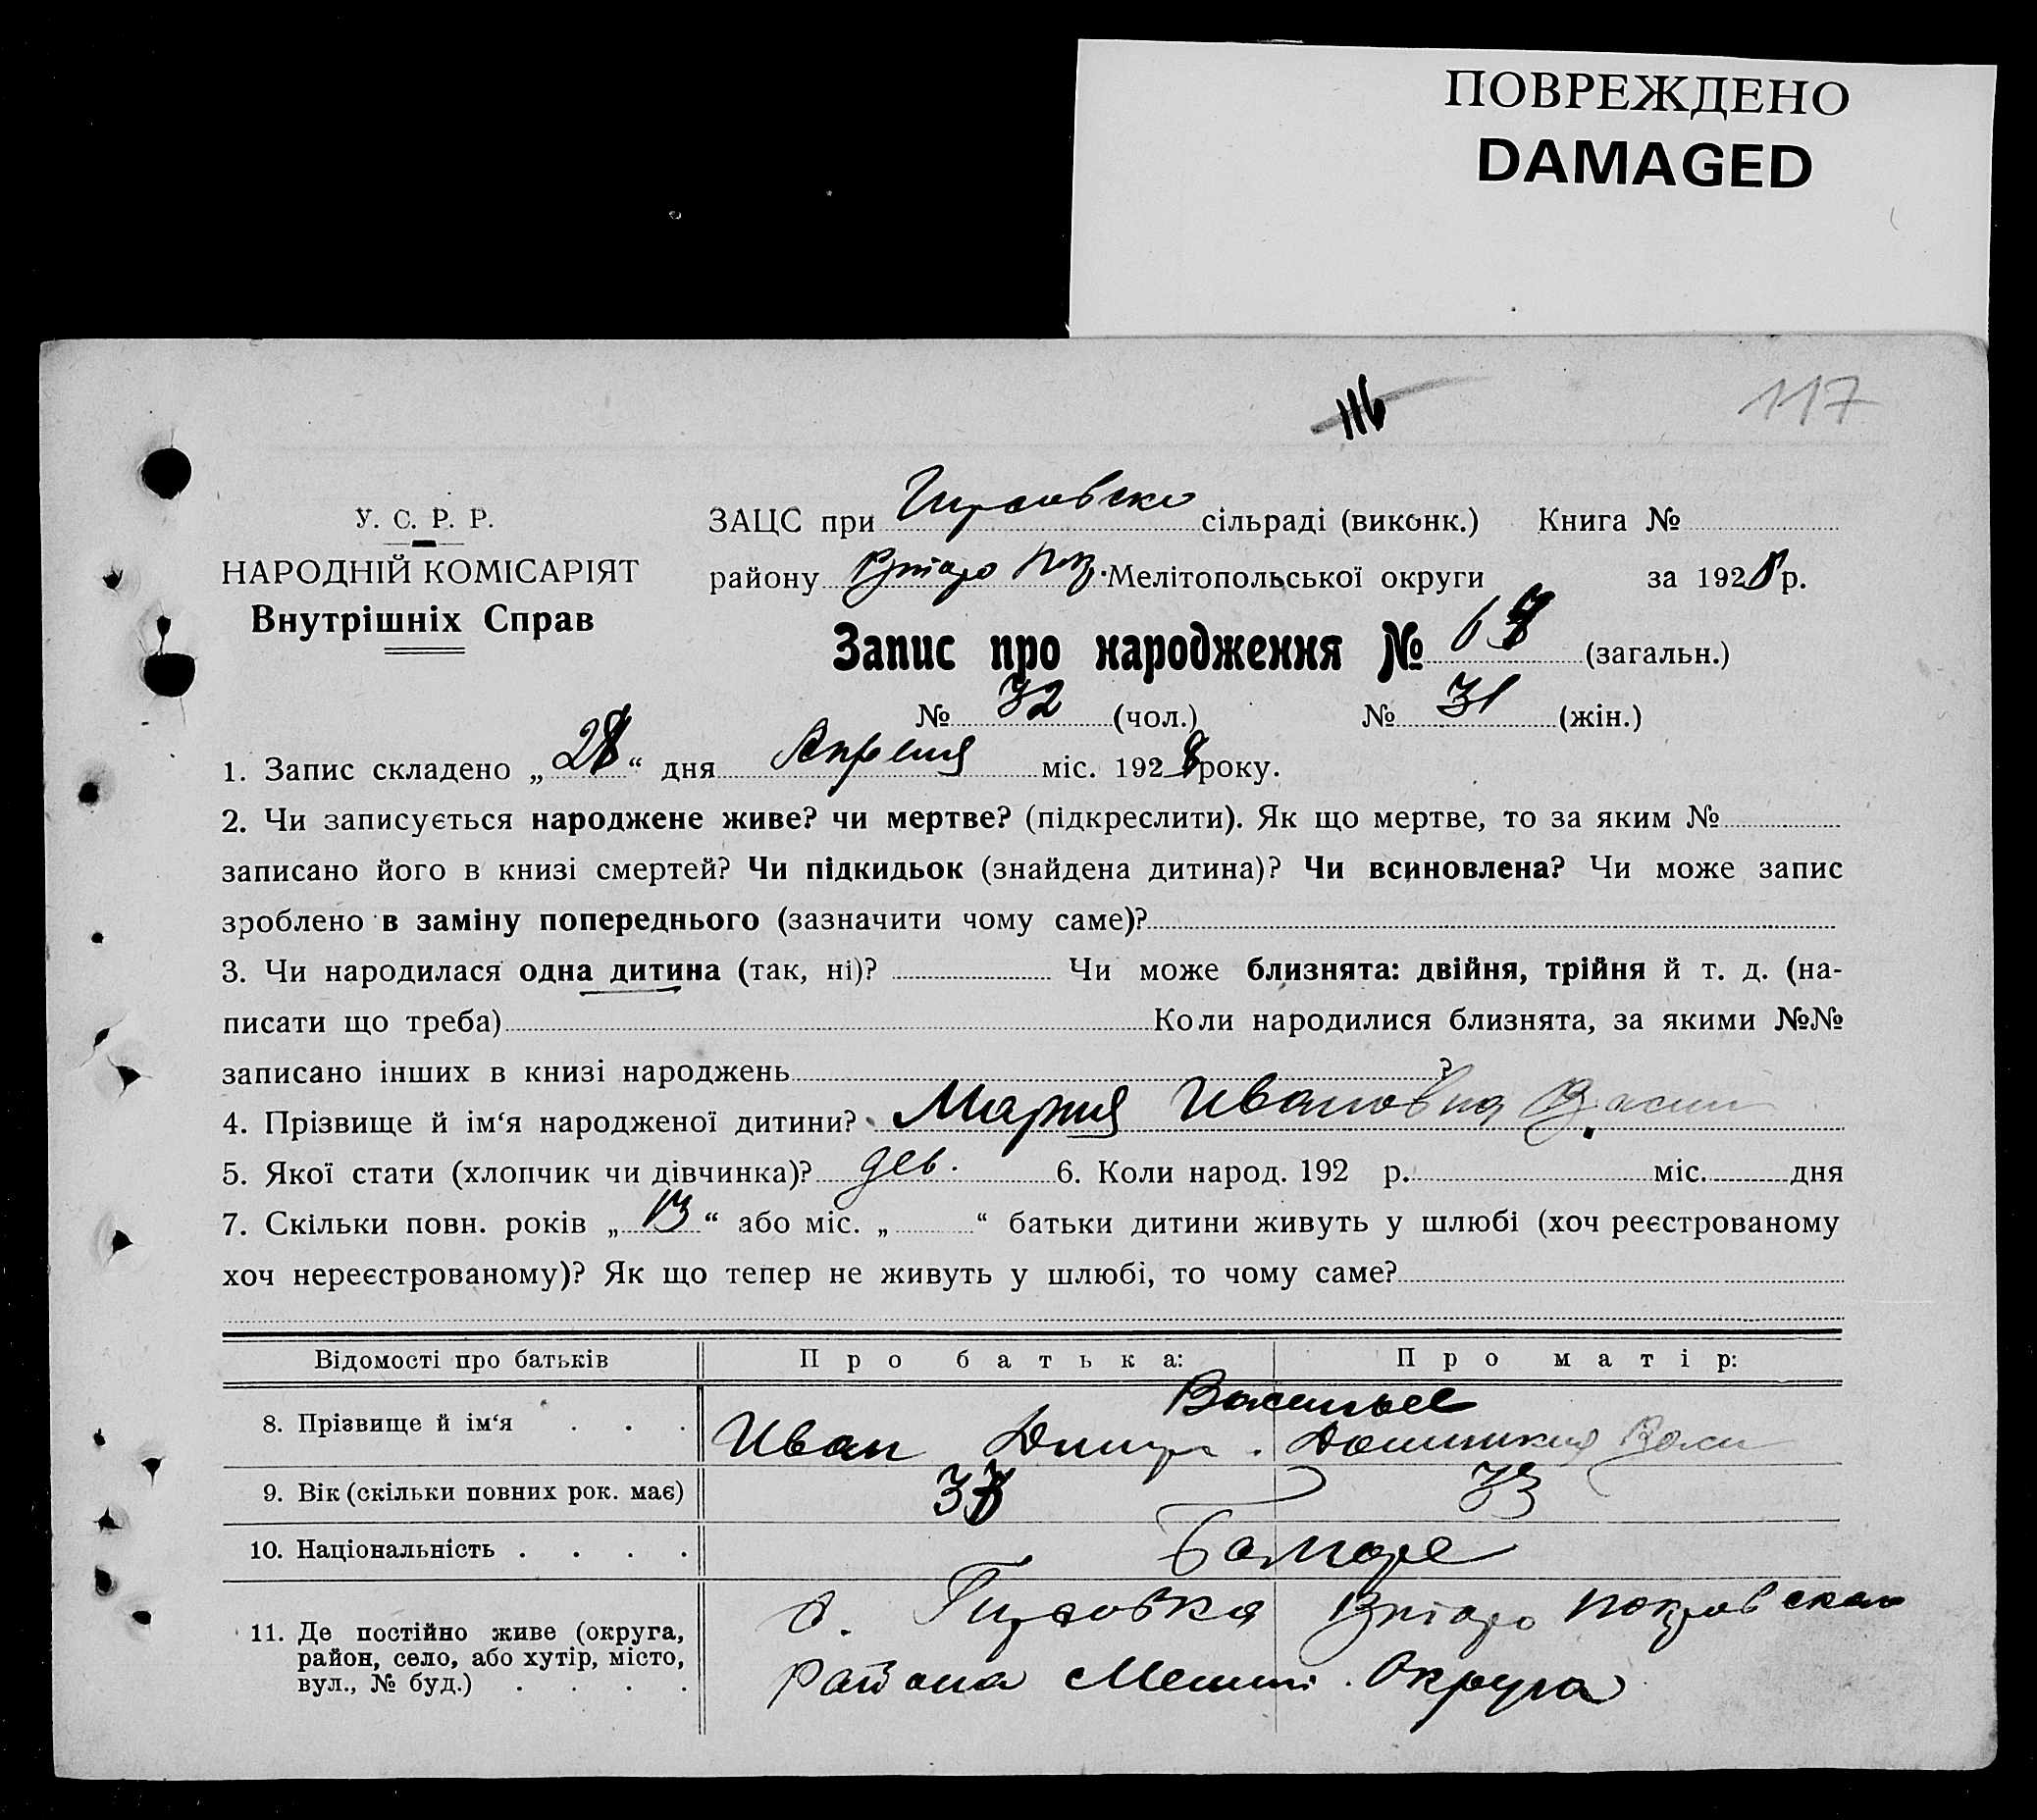 ПОВРЕЖДЕНО
DAMAGED
116
117
У. С. Р. Р.
НАРОДНІЙ КОМІСАРІЯТ
Внутрішніх Справ
ЗАЦС при сільраді (виконк.) Книга №
району Мелітопольської округи за 1928 р.
Запис про народження № (загальн.)
№ 32 (чол.) № 31 (жін.)
1. Запис складено „28“ дня Апреля міс. 1928 року.
2. Чи записується народжене живе? чи мертве? (підкреслити). Як що мертве, то за яким №
записано його в книзі смертей? Чи підкидьок (знайдена дитина)? Чи всиновлена? Чи може запис
зроблено в заміну попереднього (зазначити чому саме)?
3. Чи народилася одна дитина (так, ні)? Чи може близнята: двійня, трійня й т. д. (на-
писати що треба) Коли народилися близнята, за якими №№
записано інших в книзі народжень ?
4. Прізвище й ім‘я народженої дитини? Мария Ивановна
5. Якої стати (хлопчик чи дівчинка)? дев. 6. Коли народ. 192 р. міс. дня
7. Скільки повн. років „13“ або міс. „ “ батьки дитини живуть у шлюбі (хоч реєстрованому
хоч нереєстрованому)? Як що тепер не живуть у шлюбі, то чому саме?
Відомості про батьків Про батька: Про матір:
8. Прізвище й ім‘я . . . Иван
9. Вік (скільки повних рок. має) 33
10. Національність . . . .
11. Де постійно живе (округа,
район, село, або хутір, місто,
вул., № буд.) . . . .
с. Гирсовка Покровского
района Мелит. Округа